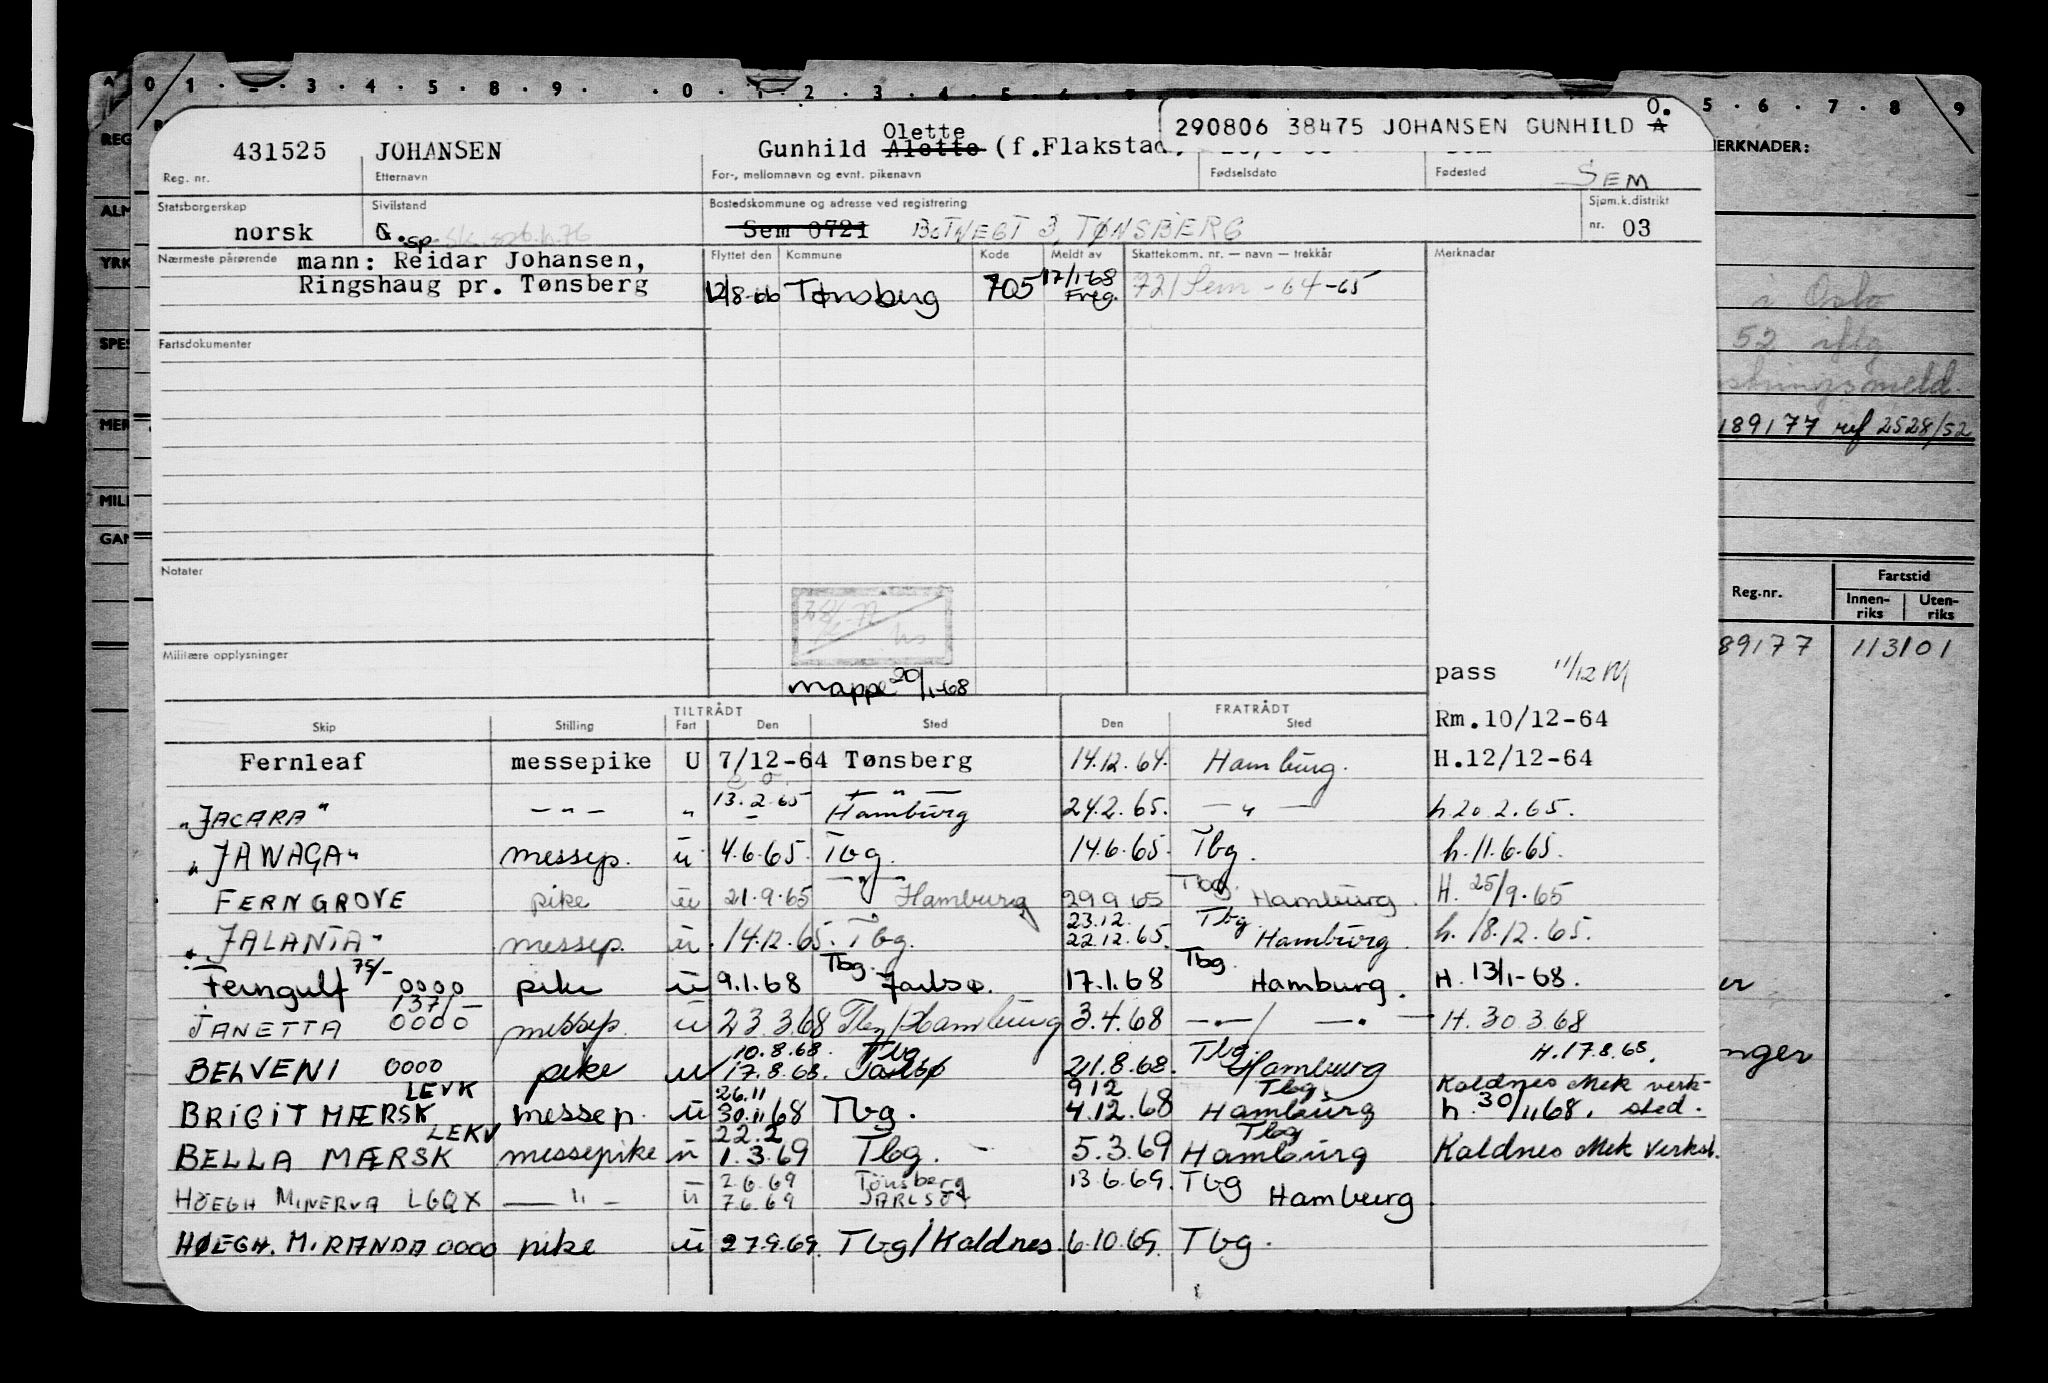 0 1 . 2 . 3 . 4 . 5 . 8 . 9 . . 0 . 1 . 2 . 3 . 4 . 5 . 6 . 7 5 . 6 . 7 . 8 9
290806 38475 JOHANSEN GUNHILD A O.
Olette
431525 JOHANSEN Gunhild Alette (f.Flakstad.
Reg. nr. Etternavn For-, mellomnavn og evnt. pikenavn Fødselsdato Fødested SEM
Statsborgerskap Sivilstand Bostedskommune og adresse ved registrering Sjøm.k.distrikt
norsk G. sp. Sem 0721 BOTNEGT 3, TØNSBERG nr. 03
Nærmeste pårørende mann: Reidar Johansen, Flyttet den Kommune Kode Meldt av Skattekomm. nr. — navn — trekkår Merknader
Ringshaug pr. Tønsberg 12/8-66 Tønsberg 705 17/1-68 Freg. 721 Sem -64-65
Fartsdokumenter
Notater
Militære opplysninger
mappe 20/1-68
pass 11/12 M
TILTRÅDT FRATRÅDT
Skip Stilling Fart Den Sted Den Sted Rm.10/12-64
Fernleaf messepike U 7/12-64 Tønsberg 14.12.64. Hamburg. H.12/12-64
"JACARA" — " — " 13.2.65 — " — Hamburg 24.2.65. — " — h.20.2.65.
"JAWAGA" messep. u 4.6.65. Tbg. 14.6.65. Tbg. h.11.6.65.
FERNGROVE pike u 21.9.65 — " — Hamburg 29.9.65 Tbg. Hamburg. H. 25/9-65
"JALANTA" messep. u. 14.12.65. Tbg. 23.12. 22.12.65. Tbg Hamburg. h.18.12.65.
Ferngulf 75/- 0000 pike u 9.1.68 Tbg. Jarlsø. 17.1.68 Tbg. Hamburg. H. 13/1-68.
JANETTA 137/- 0000 messep. u 23.3.68 Tbg/Hamburg 3.4.68 — " — / — " — H.30.3.68
BELVENI 0000 pike u 10.8.68. 17.8.68. Tbg Jarlsø 21.8.68. Tbg. Hamburg H.17.8.68.
BRIGIT MÆRSK LEVK messep. u 26.11 30.11.68 Tbg. 9.12 4.12.68 Tbg. Hamburg Kaldnes Mek verksted. h. 30/11 68.
BELLA MÆRSK LEKV messepike u 22.2 1.3.69 Tbg. - 5.3.69 Tbg Hamburg Kaldnes Mek Verkst.
HÖEGH MINERVA LGQX — " — u 2.6.69 7.6.69 Tønsberg JARLSØY 13.6.69. Tbg Hamburg
HØEGH. MIRANDA 0000 pike u 27.9.69. Tbg/Kaldnes. 6.10.69. Tbg.
REG
ALM
YRK
SPES
MER
MILI
GAN
MERKNADER:
i Oslo
52 iflg
189177 ref 2528/52
Reg.nr. Fartstid
Innenriks Utenriks
89177 113101
er
nger